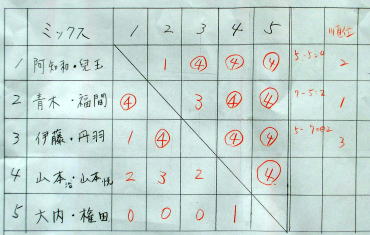 ミックス 1 2 3 4 5 順位
1 阿知和・児玉 1 ④ ④ ④ 2
2 青木・福間 ④ 3 ④ ④ 1
3 伊藤・丹羽 1 ④ ④ ④ 3
4 山本浩・山本悦 2 3 2 ④
5 大内・権田 0 0 0 1